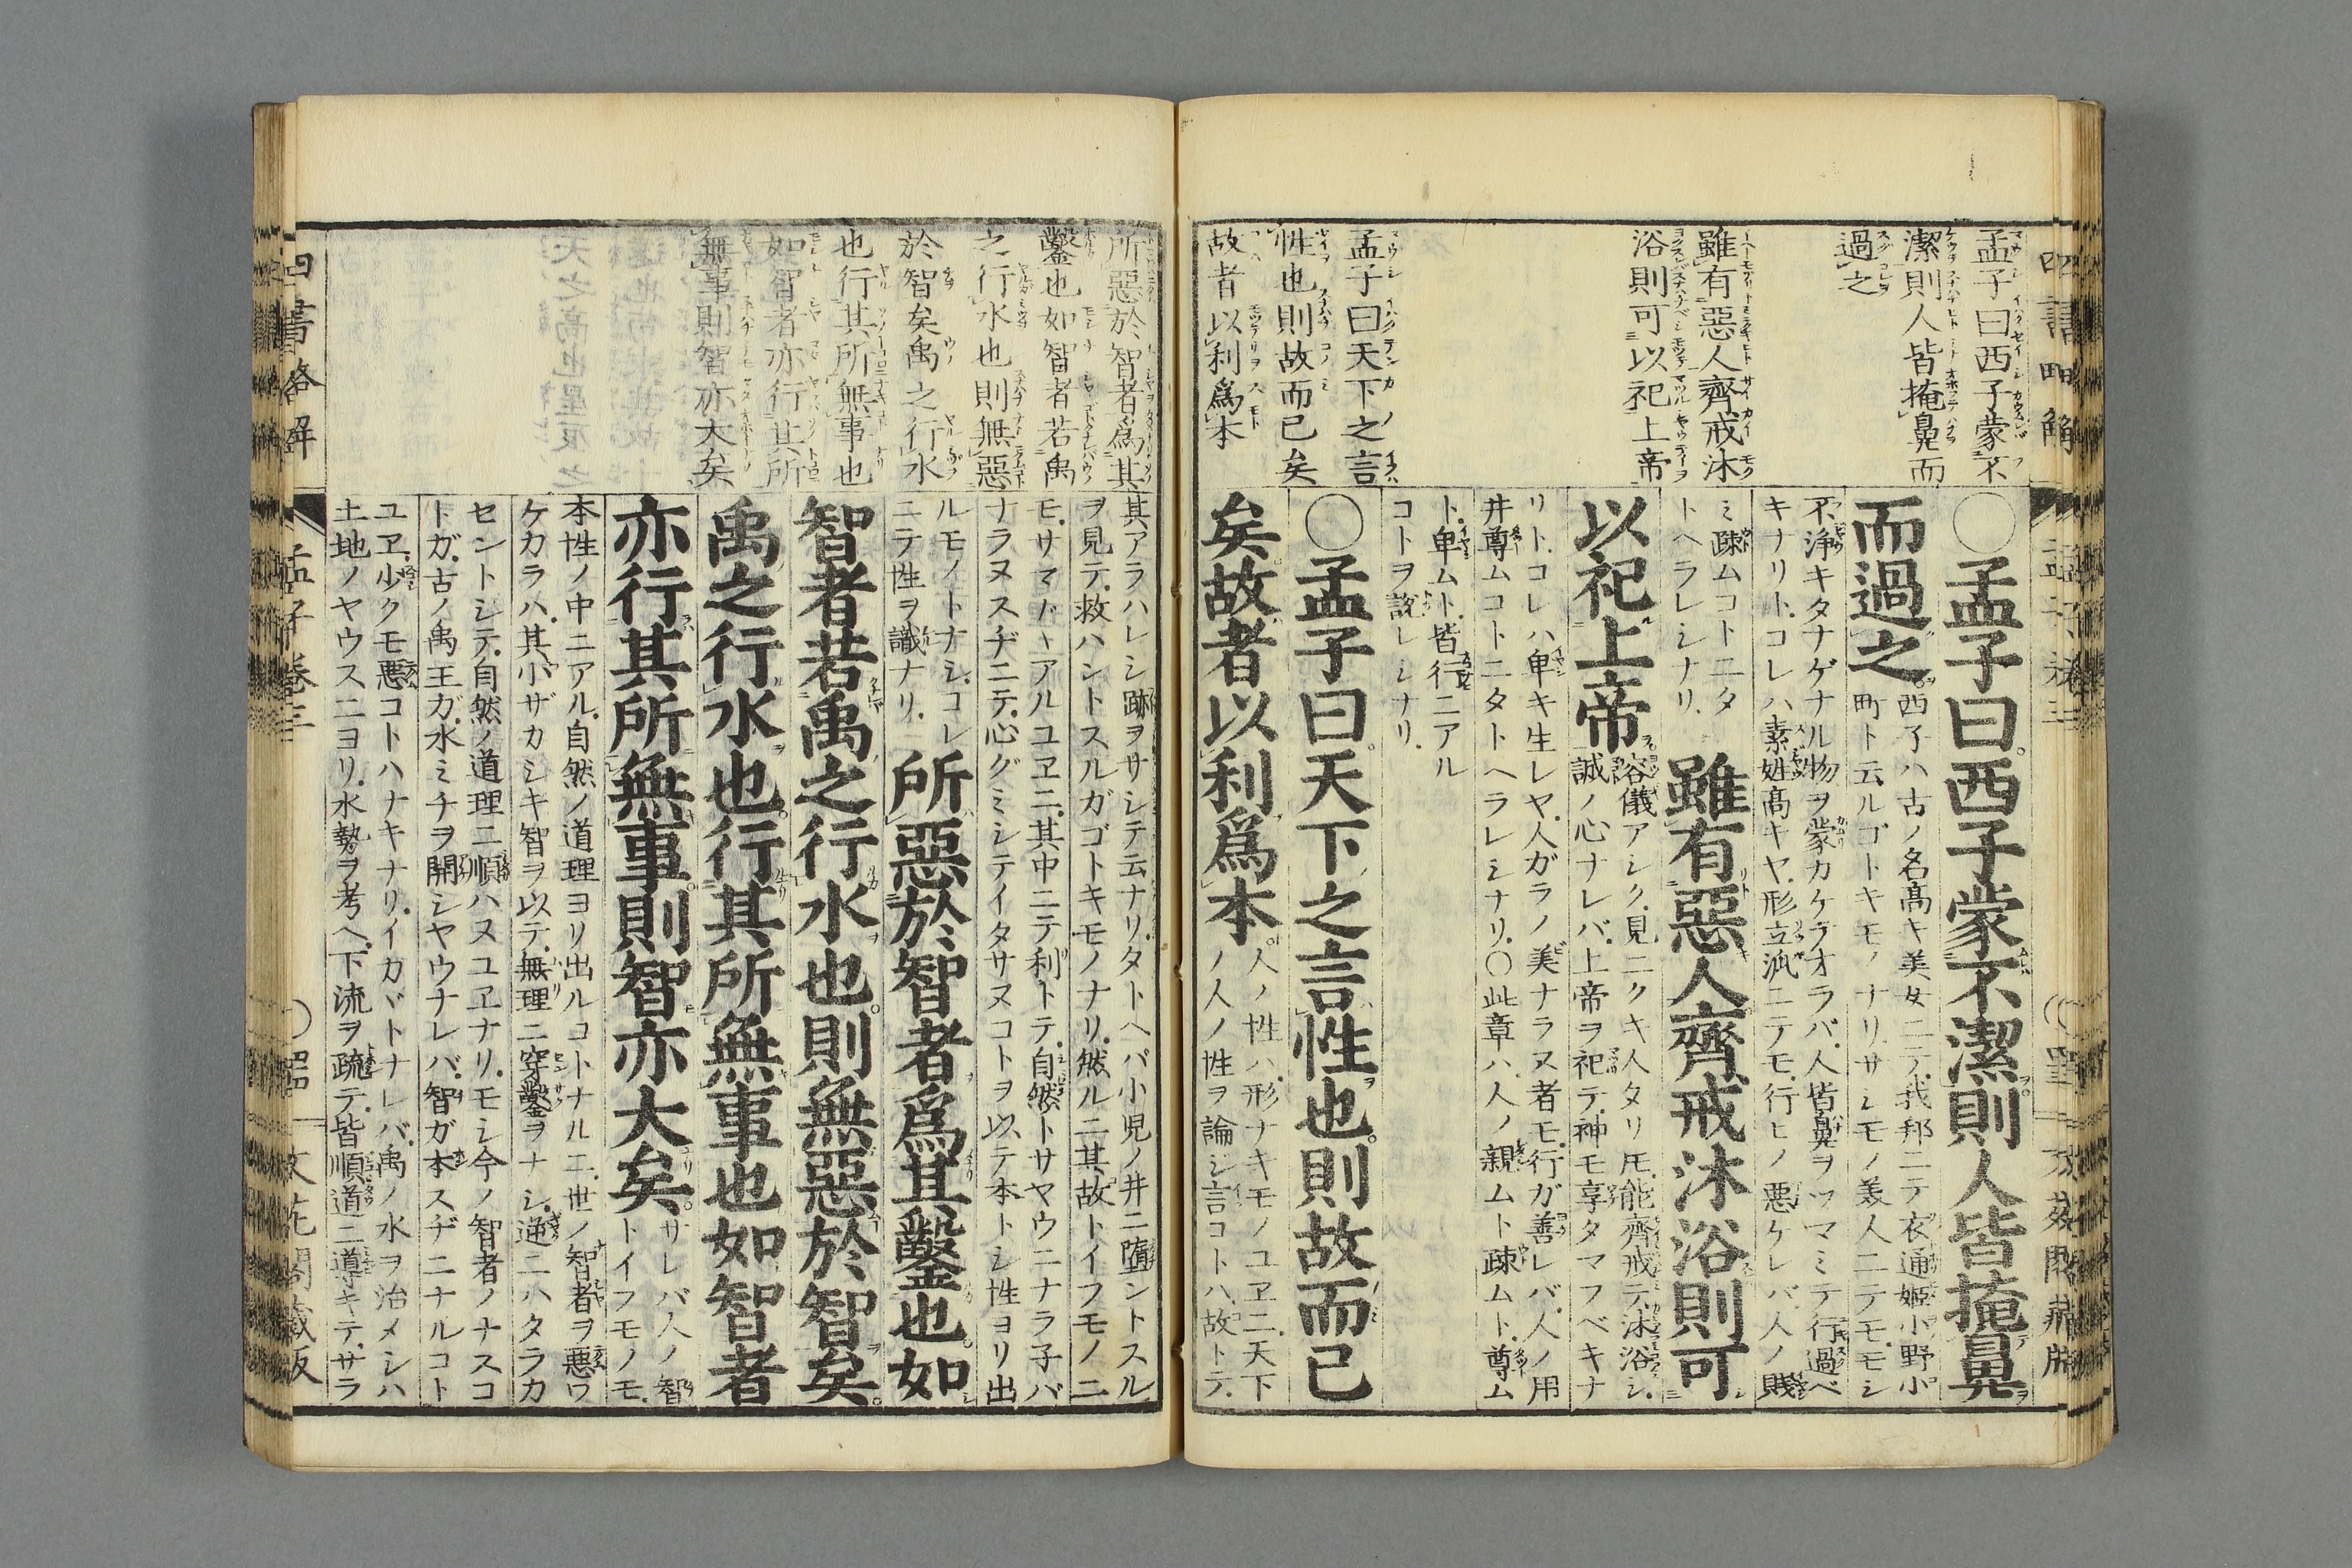 孟子曰西子蒙不
潔則人皆掩鼻而
過之
雖有惡人齊戒沐
浴則可以祀上帝
孟子曰天下之言
性也則故而已矣
故者以利爲本
〇孟子曰西子蒙不潔則人皆掩鼻
而過之
西子ハ古ノ名髙キ美女ニテ我邦ニテ衣通姫小野小
町ト云ルゴトキモノナリサシモノ美人ニテモモシ
不浄キタナゲナル物ヲ蒙カケテオラバ人皆鼻ヲツマミテ行過ベ
キナリトコレハ素姓髙キヤ形立派ニテモ行ヒノ悪ケレバ人ノ賤
ミ疎ムコトニタ
トヘラレシナリ
雖有惡人齊戒沐浴則可
以祀上帝
容儀アシク見ニクキ人タリ𪜈能齊戒テ沐浴シ
誠ノ心ナレバ上帝ヲ祀テ神モ享タマフベキナ
リトコレハ卑キ生レヤ人ガラノ美ナラヌ者モ行ガ善レバ人ノ用
井尊ムコトニタトヘラレシナリ〇此章ハ人ノ親ムト疎ムト尊ム
ト卑ムト皆行ニアル
コトヲ説レシナリ
〇孟子曰天下之言性也則故而已
矣故者以利爲本
人ノ性ハ形ナキモノユヱニ天下
ノ人ノ性ヲ論ジ言コトハ故トテ
所惡於智者爲其
鑿也如智者若禹
之行水也則無惡
於智矣禹之行水
也行其所無事也
如智者亦行其所
無事則智亦大矣
其アラハレシ跡ヲサシテ云ナリタトヘバ小児ノ井ニ墮ントスル
ヲ見テ救ハントスルガゴトキモノナリ然ルニ其故トイフモノニ
モサマ〴〵アルユヱニ其中ニテ利トテ自然トサヤウニナラ子バ
ナラヌスヂニテ心グミシテイタサヌコトヲ以テ本トシ性ヨリ出
ルモノトナシコレ
ニテ性ヲ識ナリ
所惡於智者爲其鑿也如
智者若禹之行水也則無惡於智矣
禹之行水也行其所無事也如智者
亦行其所無事則智亦大矣
サレバ人ノ智
トイフモノモ
本性ノ中ニアル自然ノ道理ヨリ出ルコトナルニ世ノ智者ヲ悪ワ
ケカラハ其小ザカシキ智ヲ以テ無理ニ穿鑿ヲナシ逆ニハタラカ
セントシテ自然ノ道理ニ順ハヌユヱナリモシ今ノ智者ノナスコ
トガ古ノ禹王ガ水ミチヲ開シヤウナレバ智ガ本スヂニナルコト
ユヱ少クモ悪コトハナキナリイカヾトナレバ禹ノ水ヲ治メシハ
土地ノヤウスニヨリ水勢ヲ考ヘ下流ヲ疏テ皆順道ニ導キテサラ
四書略解
孟子巻三